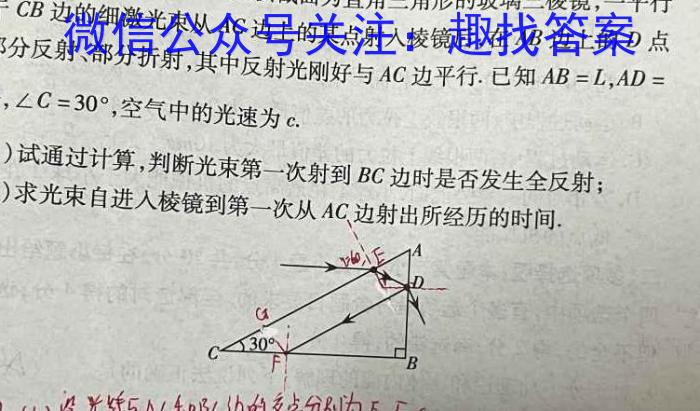 CB 边的细激光束从 AC 边上的某点射入棱镜后,在 AB 边上的 D 点
微信公众号关注:趣找答案
部分反射、部分折射,其中反射光刚好与 AC 边平行. 已知 AB = L,AD =
,∠C = 30°,空气中的光速为 c.
)试通过计算,判断光束第一次射到 BC 边时是否发生全反射;
)求光束自进入棱镜到第一次从 AC 边射出所经历的时间.
A
E
D
G
C
30°
F
B